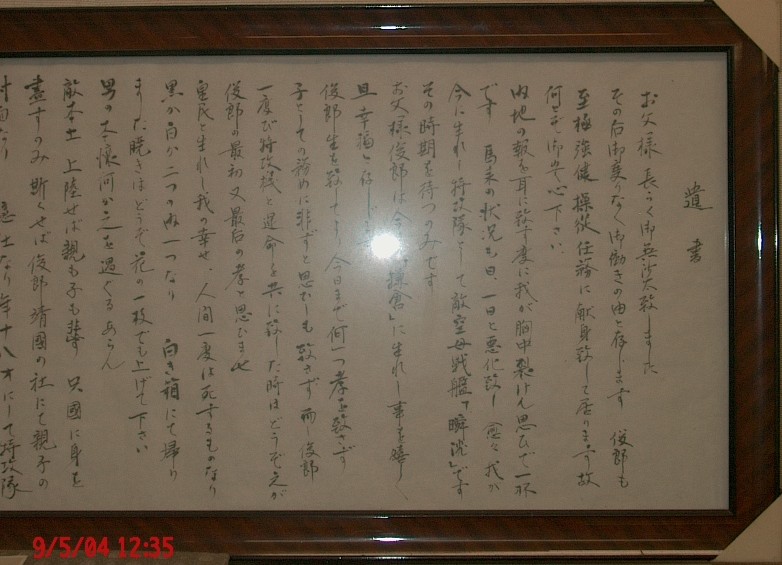 遺書
お父様 長らく御無沙汰致しました
その后御変りなく御働きの由と存じます 俊郎も
至極強健 操縦任務に献身致して居ります故
何とぞ御安心下さい
内地の報を耳に致す度に我が胸中裂けん思ひで一杯
です 馬来の状況も日一日と悪化致し 愈々我が
今に生れし特攻隊として敵空母戦艦で瞬沈です
その時期を待つのみです
お父様俊郎は に生れし事を嬉しく
且 幸福と存じ
俊郎 生を致してより今日まで何一つ孝を致さず
子としての務めに悲ずと思ひしも致さず 而し俊郎
一度び特攻機と運命を共に致した時はどうぞ之が
俊郎の最初又最后の孝と思ひませ
皇民と生れし我の幸せ、人間一度は死するものなり
黒か白か二つの内一つなり 白き箱にて帰り
ました暁きはどうぞ花の一枝でも上げて下さい
男の本懐何か之を過ぐるあらん
敵本土上陸せば親も子も 只國に身を
盡すのみ 斯くせば俊郎靖國の社にて親子の
対面なり 年十八才にして特攻隊
9/5/04 12:35